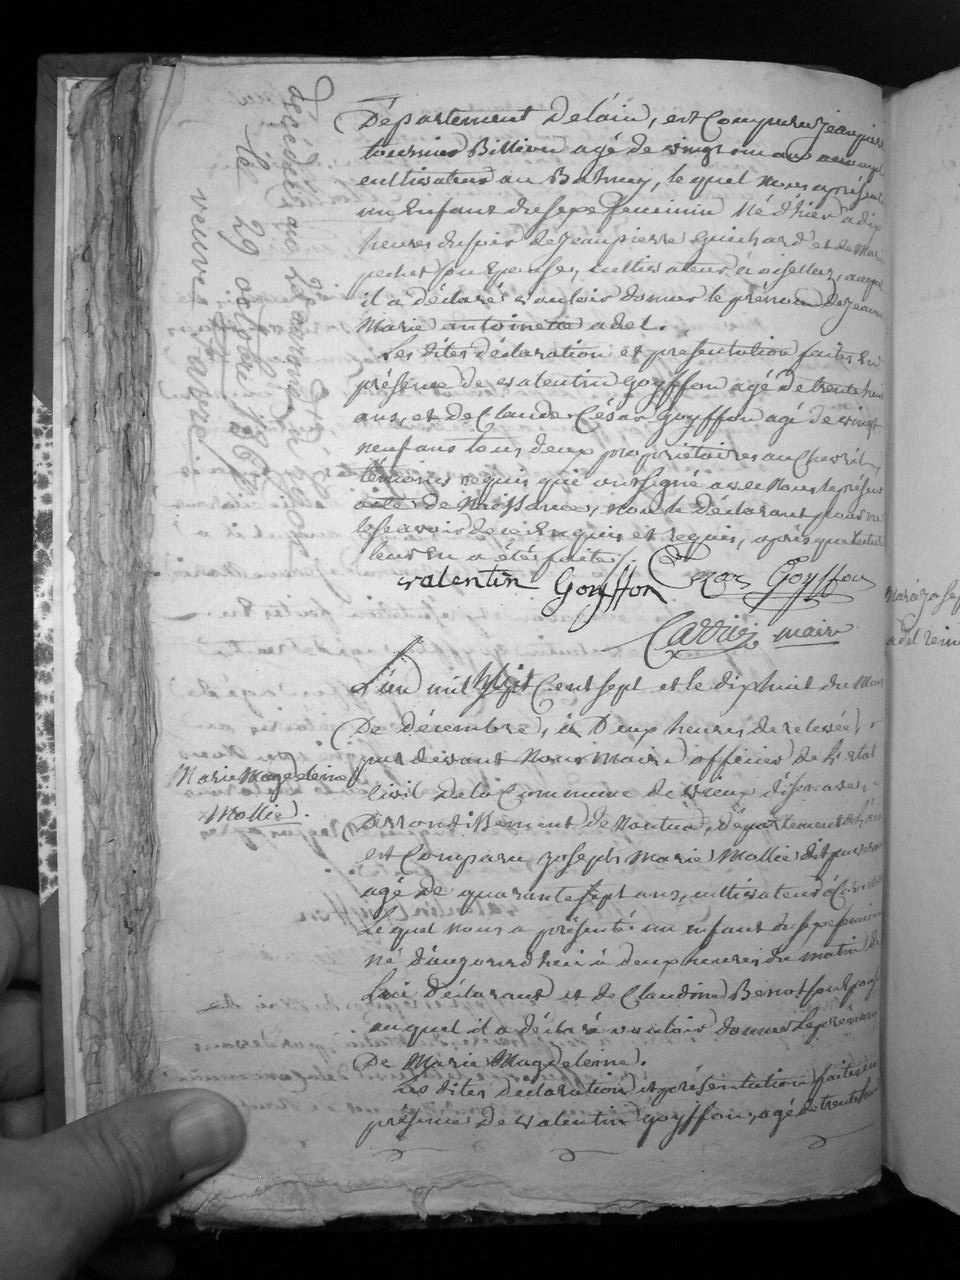 Département Delain, est Comparu jeanpierre
tournier Billion agé de vingt un ans
cultivateur au Balmay, le quel Nous a présenté
un Enfant du sexe feminin Né d'hier a dix
heures du soir de jeanpierre Guichard et de Marie
pochet son Epouse, cultivateur à oisellaz, auquel
il a déclaré vouloir donner le prénom de jeanne
Marie antoinette adel.
Les dites déclaration et présentation faites En
présence de valentin goyffon agé de trente huit
ans, et de Claude César goyffon agé de vingt
neuf ans tous deux propriétaires au Chevril,
témoins requis qui ont signé avec Nous le présent
acte de Naissance, non le déclarant pour ne
le savoir de ce Enquis et requis, après que lecture
leur En a étés faite.
valentin Goyffon Cezar Goyffon
Carrier maire
L'an mil huit Cent sept et le dixhuit du Mois
De décembre, à Deux heures de relevée,
par devant Nous Maire officier de l'Etat
Civil De la Commune de vieux d'isenave,
arrondissement de Nantua, département de l'ain
est Comparu joseph Marie Mollie dit
agé de quarante sept ans, cultivateur à
Le quel nous a présenté un enfant du sexe feminin
né d'aujourd'hui à deux heures du matin de
Lui Déclarant et de Claudine Benoit son Epouse
auquel il a déclaré vouloir donner le prénom
De Marie Magdeleine.
Les dites déclaration et présentation faites en
présence De valentin goyffon, agé de trente huit
Marie Magdeleine
Mollie.
décédée au
le 29 octobre 1867
veuve favre
Marie josep
adel